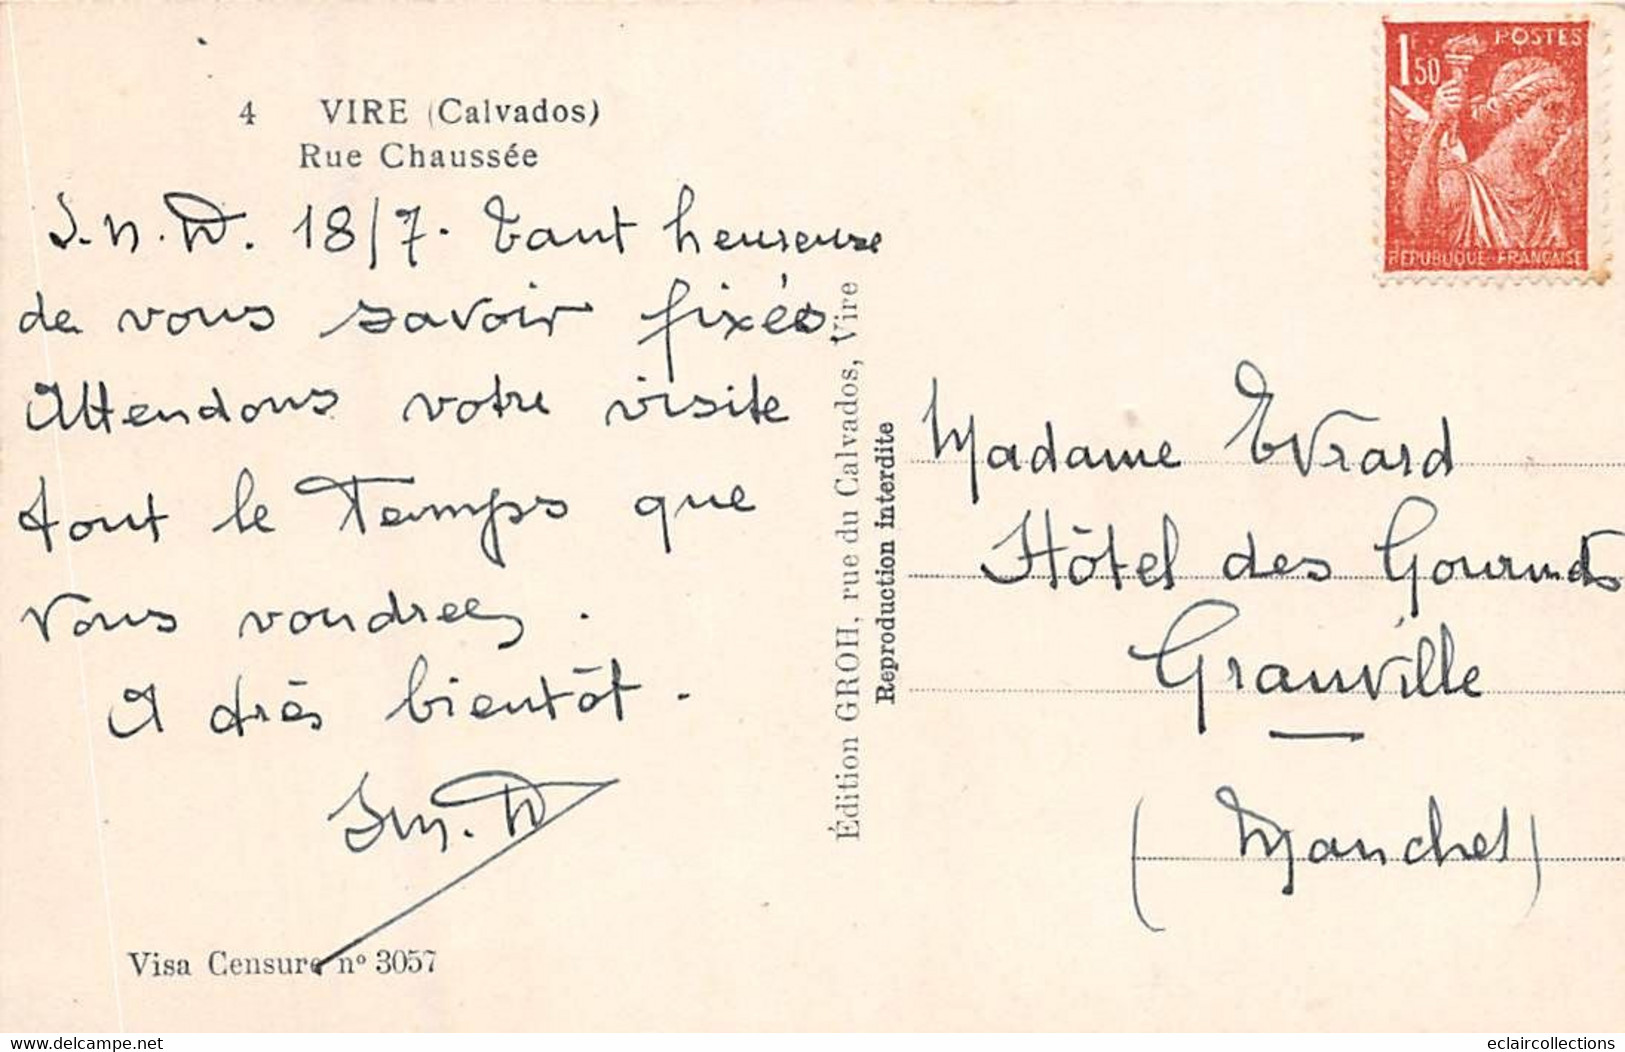 4 VIRE (Calvados)
Rue Chaussée
18/7. Tant heureuse
de vous savoir fixés,
Attendons votre visite
tout le Temps que
Vous voudrez.
A très bientôt.
Visa Censure nº 3057
Édition GROH, rue du Calvados, Vire
Reproduction interdite
1F.50 POSTES
REPUBLIQUE-FRANÇAISE
Madame Evrard
Hôtel des Gourmets
Granville
(Manche)
www.delcampe.net
eclaircollections